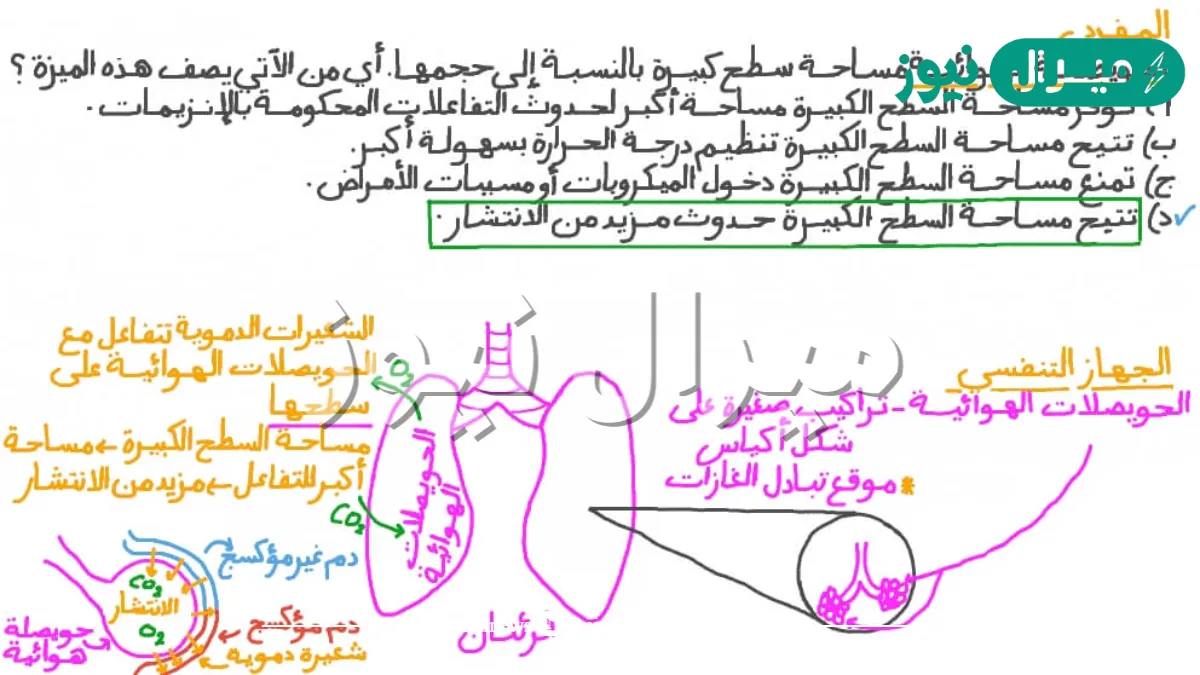 المفردي
ميرال نيوز
مساحة سطح كبيرة بالنسبة إلى حجمها. أي من الآتي يصف هذه الميزة؟
أ) توفر مساحة السطح الكبيرة مساحة أكبر لحدوث التفاعلات المحكومة بالإنزيمات.
ب) تتيح مساحة السطح الكبيرة تنظيم درجة الحرارة بسهولة أكبر.
ج) تمنع مساحة السطح الكبيرة دخول الميكروبات أو مسببات الأمراض.
د) تتيح مساحة السطح الكبيرة حدوث مزيد من الانتشار.
ميرال نيوز
الجهاز التنفسي
الحويصلات الهوائية - تراكيب صغيرة على
شكل أكياس
* موقع تبادل الغازات
O₂
الحويصلات
الهوائية
CO₂
رئتان
الشعيرات الدموية تتفاعل مع
الحويصلات الهوائية على
سطحها
مساحة السطح الكبيرة ← مساحة
أكبر للتفاعل ← مزيد من الانتشار
دم غير مؤكسج
CO₂
الانتشار
O₂
دم مؤكسج
شعيرة دموية
حويصلة
هوائية